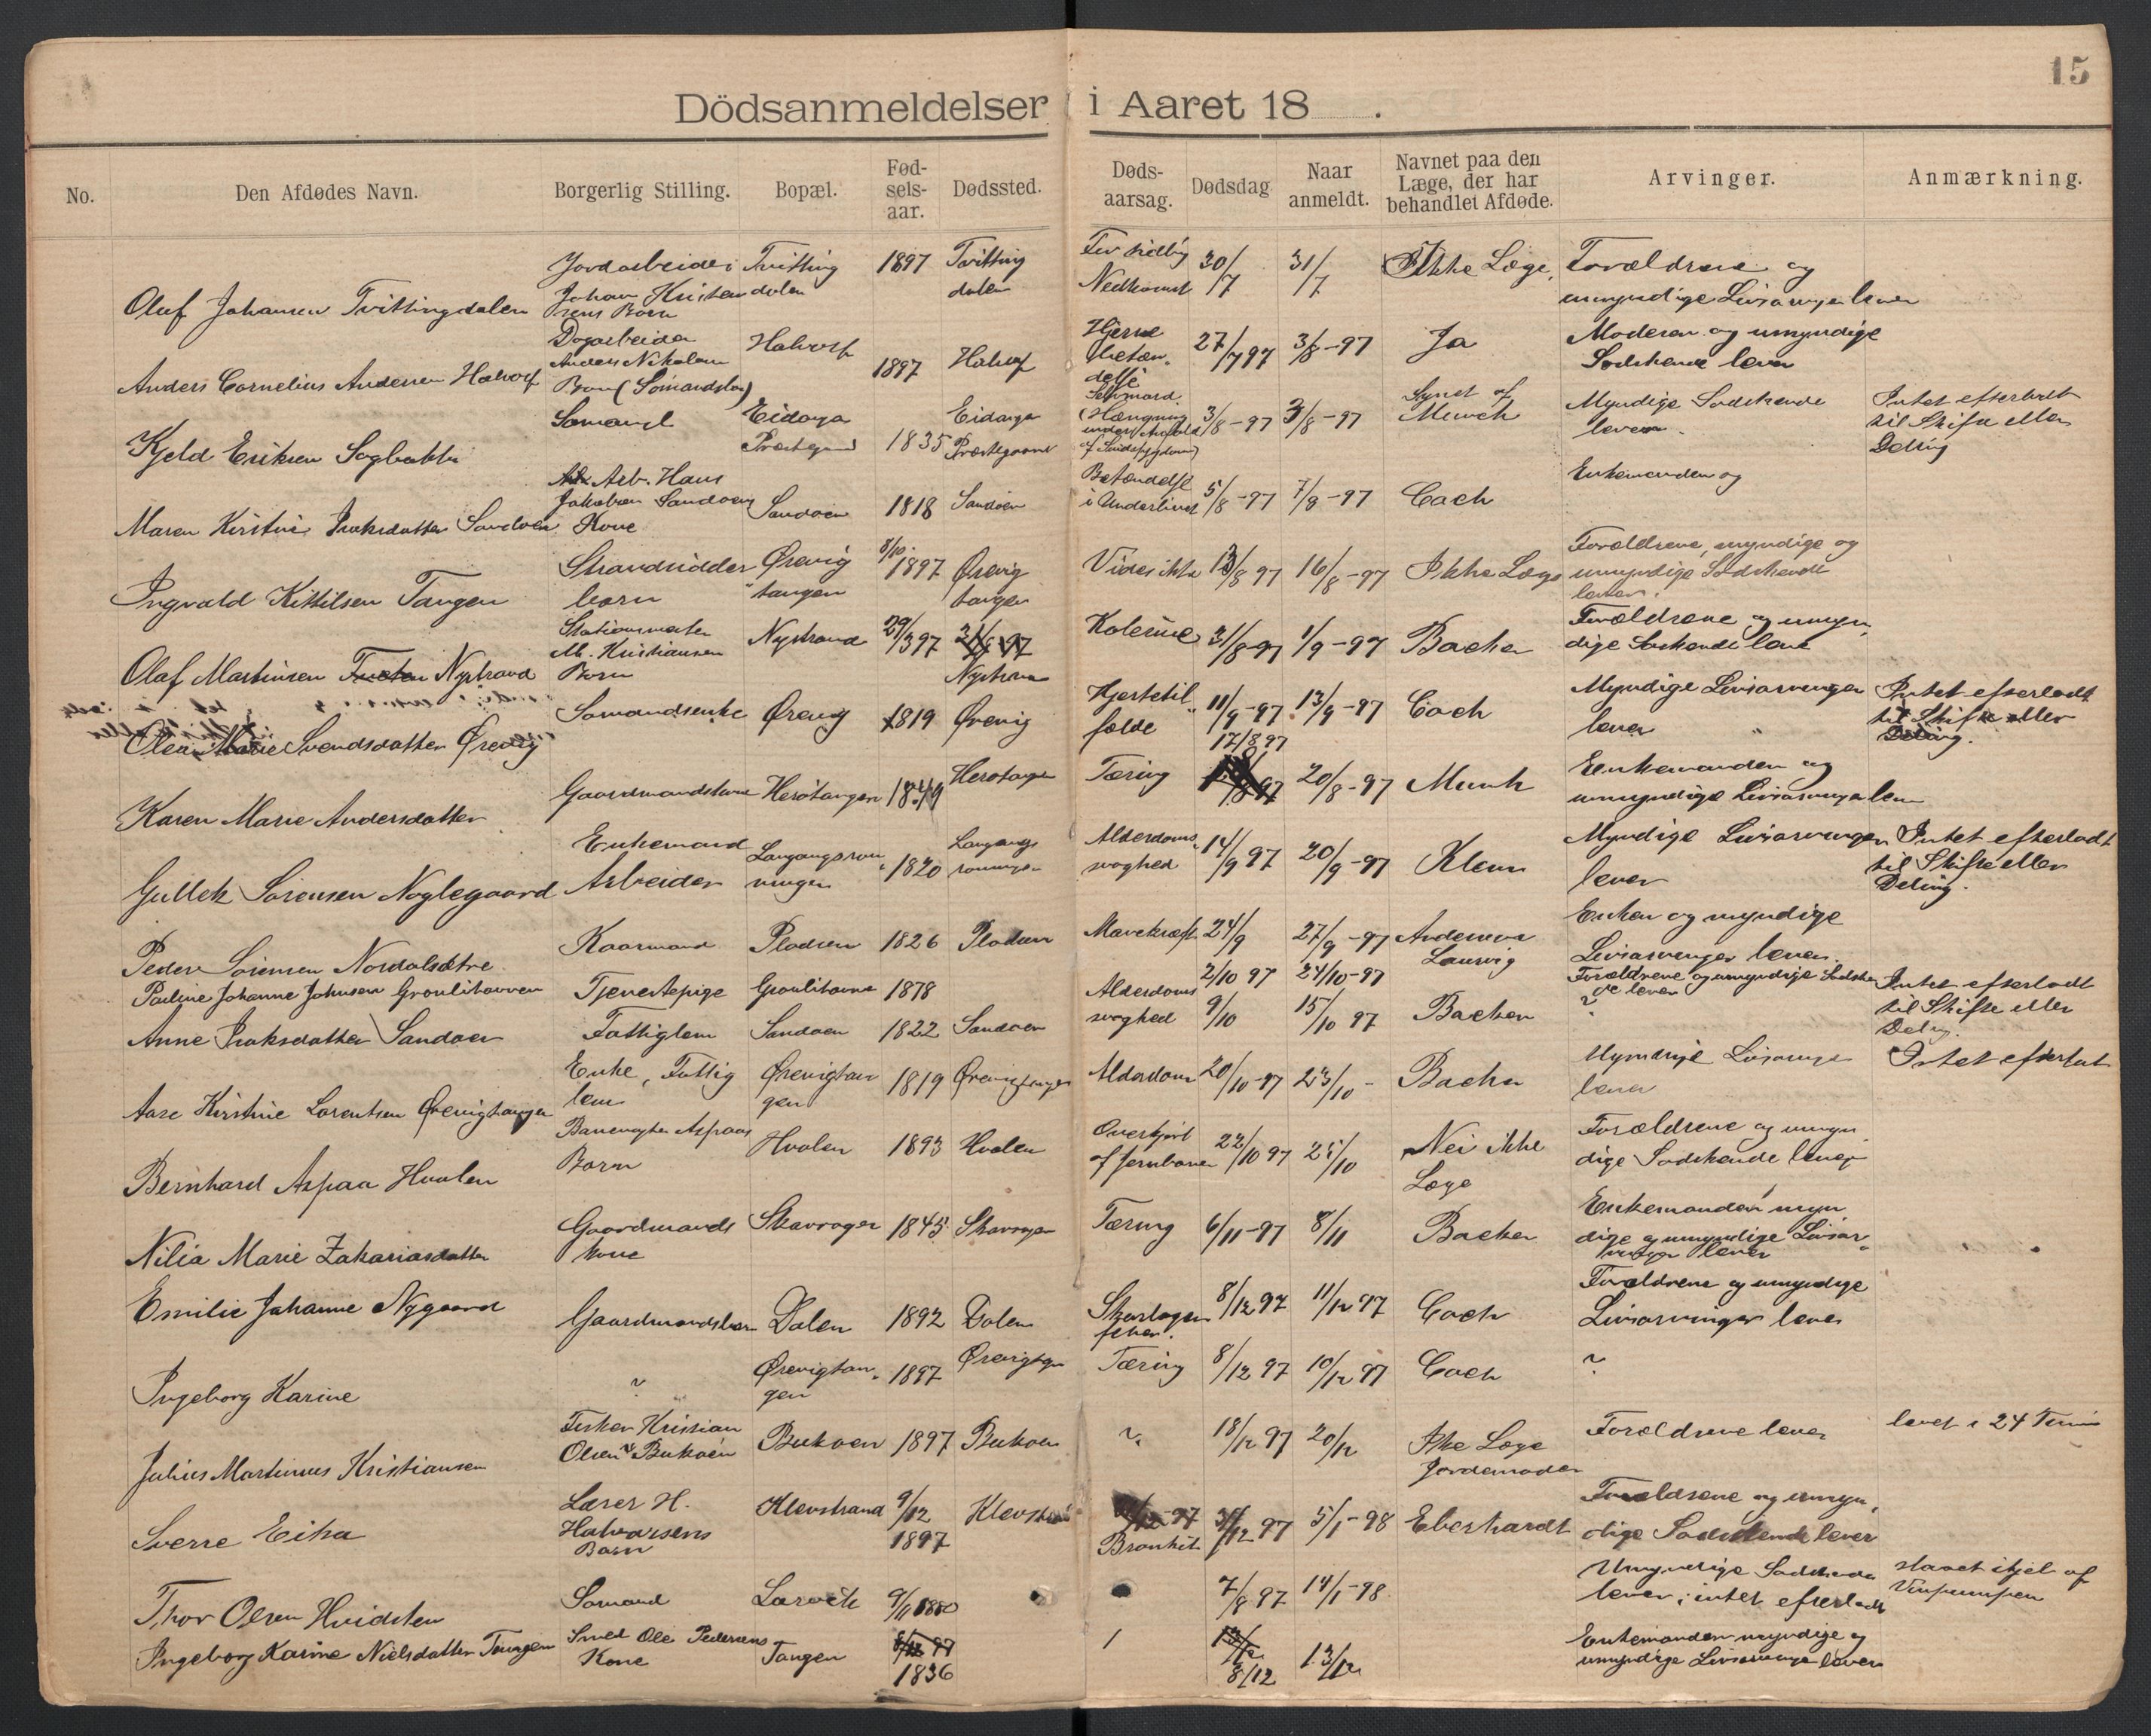 15
Dödsanmeldelser i Aaret 18 .
No. Den Afdødes Navn. Borgerlig Stilling. Bopæl. Fød-sels-aar. Dødssted. Døds-aarsag. Dødsdag Naar anmeldt. Navnet paa den Læge, der har behandlet Afdøde. Arvinger. Anmærkning.
Olaf Johansen Tvittingdalen Jordarbeider Johan Kristensens Barn Tvitting dalen 1897 Tvitting dalen For tidlig Nedkomst 30/7 31/7 Ikke Læge. Forældrene og umyndige Livsarvinger lever
Anders Cornelius Andersen Halvorf Dagarbeider Anders Nikolaisen Barn (Sömandsbarn) 1897 Hjerne betæn-delse 27/7 97 3/8-97 Ja Moderen og umyndige Sødskende lever
Kjeld Eriksen Sagbakken Sømand Eidanger Præstegaard 1835 Eidanger Præstegaard Selvmord (Hængning 3/8-97 3/8-97 Synet af Munch Myndige Sødskende lever. Intet efterladt til Skifte eller Deling
Maren Kirstine Isaksdatter Sandøen Arb. Hans Jakobsen Sandøens Kone Sandøen 1818 Sandøen Betændelse i Underlivet 5/8-97 7/8-97 Coch Enkemanden og
Ingvald Kittilsen Tangen Strandsidder barn Ørevig tangen 8/10 1897 Ørevig tangen 13/8 97 16/8-97 Ikke Læge Forældrene, myndige og umyndige Sødskende lever.
Olaf Martinsen Nystrand Stationsmester M. Kristiansen Barn Nystrand 29/3 97 Nystrand Kolerine 31/8-97 1/9-97 Backer Forældrene og umyn-dige Søskende lever
Olea Marie Svendsdatter Ørevig Sømandsenke Ørevig 1819 Ørevig Hjertetil-fælde 11/9-97 13/9-97 Coch Myndige Livsarvinger lever Intet efterladt til Skifte eller Deling.
Karen Marie Andersdatter Gaardmandskone Herøtangen 1849 Herøtangen Tæring 17/8 97 20/8-97 Munk Enkemanden og umyndige Livsarvinger lever
Gullek Sørensen Nøglegaard Enkemand Arbeider Langangsrønningen 1820 Langangs rønningen Alderdoms-svaghed 14/9 97 20/9-97 Klem Myndige Livsarvinger lever Intet efterladt til Skifte eller Deling.
Peder Sörensen Nordalsætre Kaarmand Pladsen 1826 Pladsen Mavekræft 24/9 27/9-97 Andersen Laurvig Enken og myndige Livsarvinger lever.
Pauline Johanne Johnsen Grønlihaven Tjenestepige 1878 2/10 97 24/10-97 Forældrene og umyndige Sødskende lever
Anne Isaksdatter Sandøen Fattiglem Sandøen 1822 Sandøen Alderdoms svaghed 9/10 15/10 97 Backer ? Intet efterladt til Skifte eller Deling.
Aase Kirstine Lorentsen Ørevigtangen Enke, Fattig lem Ørevigtan gen 1819 Ørevigtangen Alderdom 20/10-97 23/10- Backer Myndige Livsarvinger lever Intet efterlat
Bernhard Aspaa Hvalen Banevogter Aspaas Barn Hvalen 1893 Hvalen Overkjört af Jernbanen 22/10 97 25/10 Nei ikke Læge Forældrene og umyn-dige Sødskende lever
Nilia Marie Zakariasdatter Gaardmands kone Skavrager 1845 Skavrager Tæring 6/11-97 8/11 Backer Enkemanden myn dige og umyndige Livsar-vinger lever
Emilie Johanne Nygaard Gaardmandsbarn Dalen 1892 Dalen Skarlagensfeber. 8/12 97 11/12 97 Coch Forældrene og umyndige Livsarvinger lever
Ingeborg Karine ? Ørevigtan-gen 1897 Ørevigtgen Tæring 8/12 97 10/12 97 Coch ?
Julius Martinius Kristiansen Fisker Kristian Olsen Bukøen Bukøen 1897 Bukøen ? 18/12 97 20/12 Ike Læge Jordemoder Forældrene lever levet i 24 Timer
Sverre Eika Lærer H. Halvorsens Barn Klevstrand 9/12 1897 Klevstrand Bronkit 31/12 97 5/1-98 Eberhardt Forældrene og umyn-dige Sødskende lever
Thor Olsen Hvidsten Sømand Larvik 9/11 1880 7/8 97 14/1-98 Umyndige Sødskende lever; intet efterladt slaaet ihjel af Vinpumpen
Ingeborg Karine Nielsdatter Tangen Smed Ole Pedersens Kone Tangen 1836 8/12 13/12 Enkemanden myndige og umyndige Livsarvinger lever